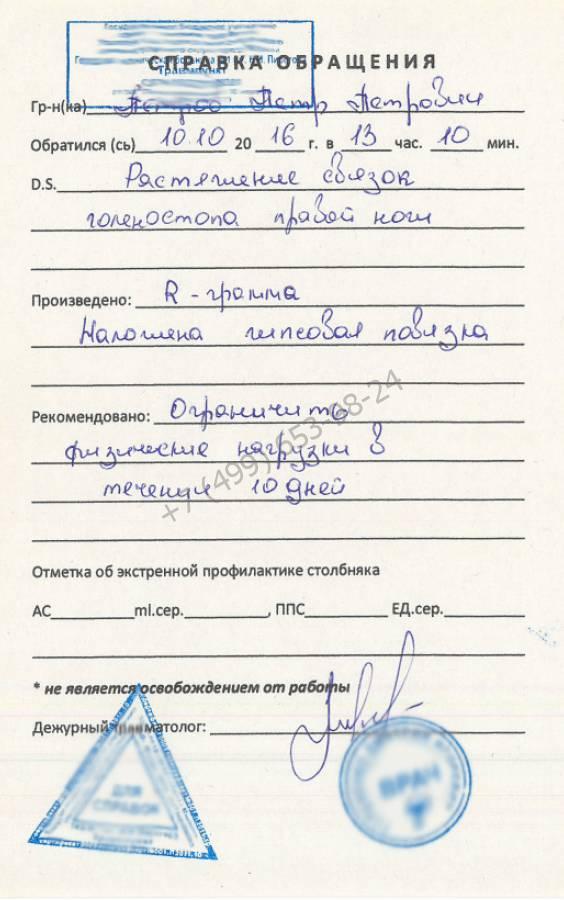 СПРАВКА ОБРАЩЕНИЯ
Травмпункт
Гр-н(ка) Петров Петр Петрович
Обратился (сь) 10.10 20 16 г. в 13 час. 10 мин.
D.S. Растяжение связок
голеностопа правой ноги
Произведено: R-грамма
Наложена гипсовая повязка
Рекомендовано: Ограничить
физические нагрузки в
течении 10 дней
+7 (499) 653-68-24
Отметка об экстренной профилактике столбняка
АС ml.сер. , ППС ЕД.сер.
* не является освобождением от работы
Дежурный травматолог:
ДЛЯ
СПРАВОК
ВРАЧ